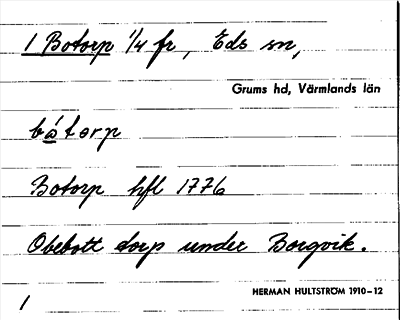 1 Botorp 1/4 fr, Eds sn,
Grums hd, Värmlands län
bátorp
Botorp hfl 1776
Obebott torp under Borgvik.
HERMAN HULTSTRÖM 1910–12
1